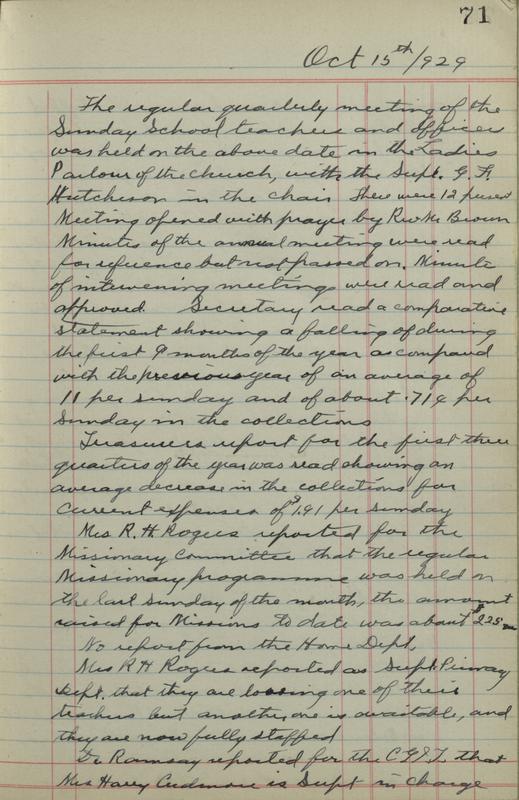 71
Oct 15th/1929
The regular quarterly meeting of the
Sunday School teachers and officers
was held on the above date in the Ladies
Parlour of the church, with the Supt. G. F.
Hutcheson in the chair There were 12 present
Meeting opened with prayer by Rev Mr Brown
Minutes of the annual meeting were read
for reference but not passed on. Minute
of intervening meetings were read and
approved. Secretary read a comparative
statement showing a falling of during
the first 9 months of the year as compared
with the previous year of an average of
11 per sunday and of about .71¢ per
Sunday in the collections
Treasurers report for the first three
quarters of the year was read showing an
average decrease in the collections for
current expenses of $1.91 per sunday
Mrs R. H. Rogers reported for the
Missionary Committee that the regular
Missionary programme was held on
the last Sunday of the month, the amount
raised for Missions to date was about $225
No report from the Home Dept.
Mrs R H Rogers reported as Supt. Primary
Dept. that they are loosing one of their
teachers but another one is available, and
they are now fully staffed
Dr Ramsay reported for the C.G.I.T. that
Mrs Harry Cudmore is Supt in charge